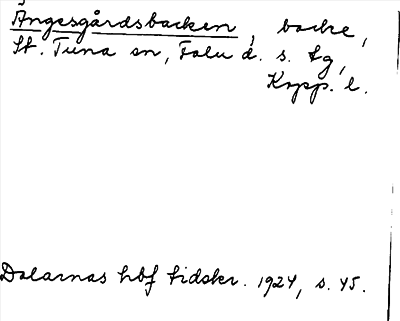 Ångesgårdsbacken, backe,
St. Tuna sn, Falu d. s. tg,
Kopp. l.
Dalarnas hbf tidskr. 1924, s. 45.